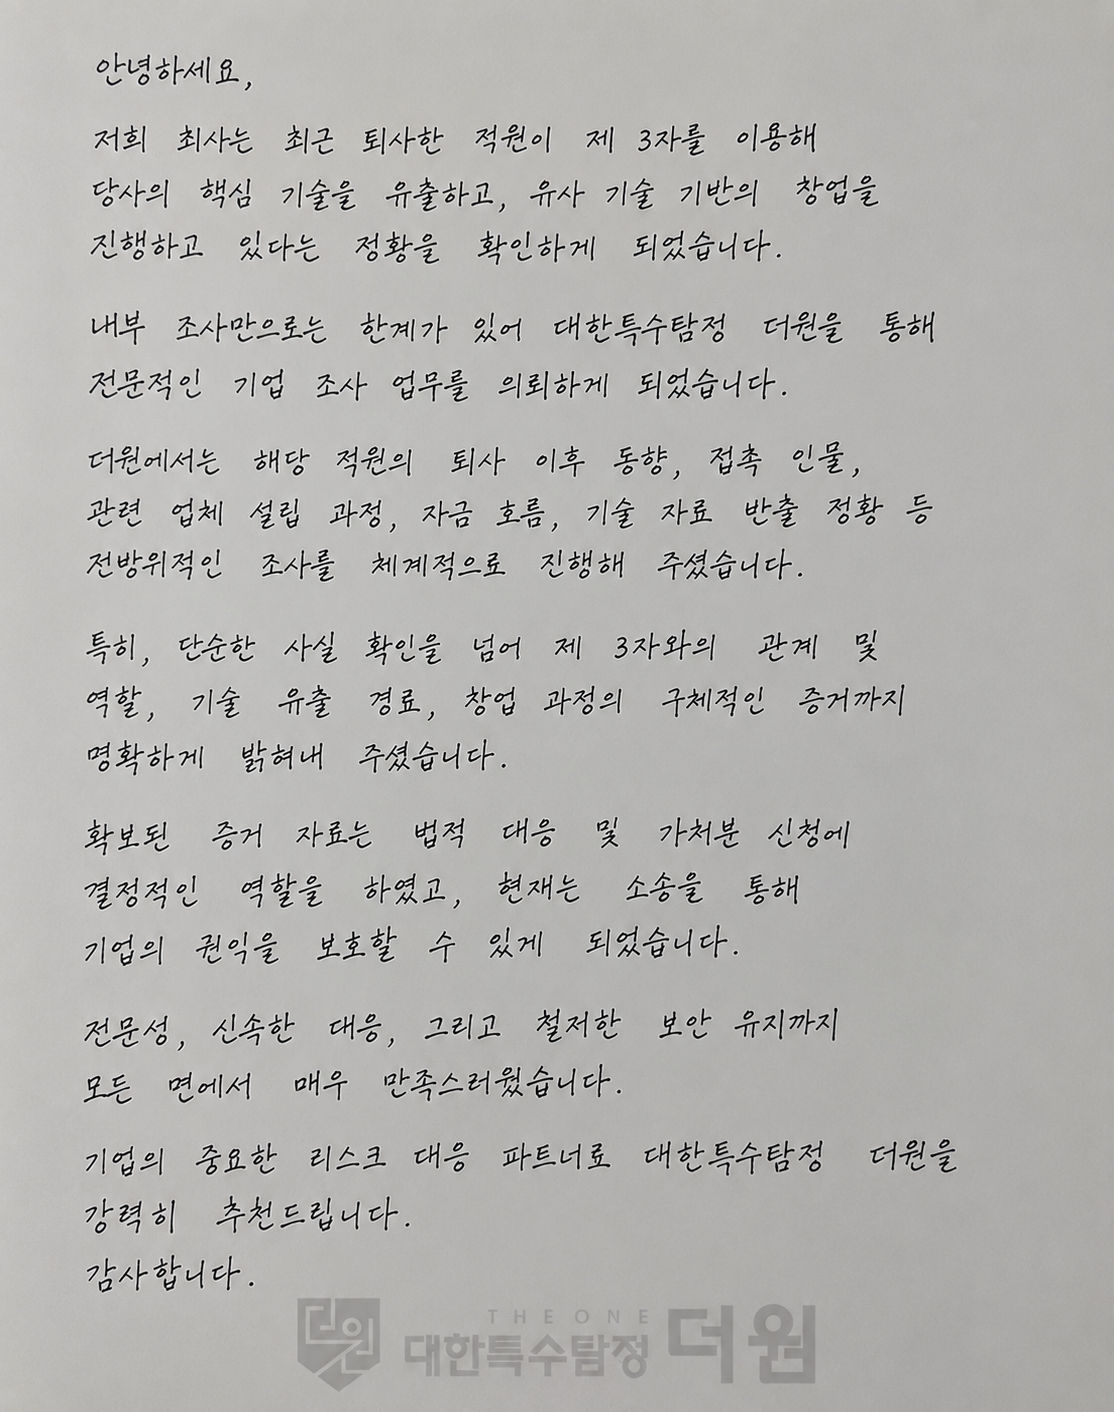 안녕하세요,
저희 최사는 최근 퇴사한 적원이 제 3자를 이용해
당사의 핵심 기술을 유출하고, 유사 기술 기반의 창업을
진행하고 있다는 정황을 확인하게 되었습니다.
내부 조사만으로는 한계가 있어 대한특수탐정 더원을 통해
전문적인 기업 조사 업무를 의뢰하게 되었습니다.
더원에서는 해당 적원의 퇴사 이후 동향, 접촉 인물,
관련 업체 설립 과정, 자금 흐름, 기술 자료 반출 정황 등
전방위적인 조사를 체계적으로 진행해 주셨습니다.
특히, 단순한 사실 확인을 넘어 제 3자와의 관계 및
역할, 기술 유출 경료, 창업 과정의 구체적인 증거까지
명확하게 밝혀내 주셨습니다.
확보된 증거 자료는 법적 대응 및 가처분 신청에
결정적인 역할을 하였고, 현재는 소송을 통해
기업의 권익을 보호할 수 있게 되었습니다.
전문성, 신속한 대응, 그리고 철저한 보안 유지까지
모든 면에서 매우 만족스러웠습니다.
기업의 중요한 리스크 대응 파트너료 대한특수탐정 더원을
강력히 추천드립니다.
감사합니다.
더원 THEONE
대한특수탐정 더원